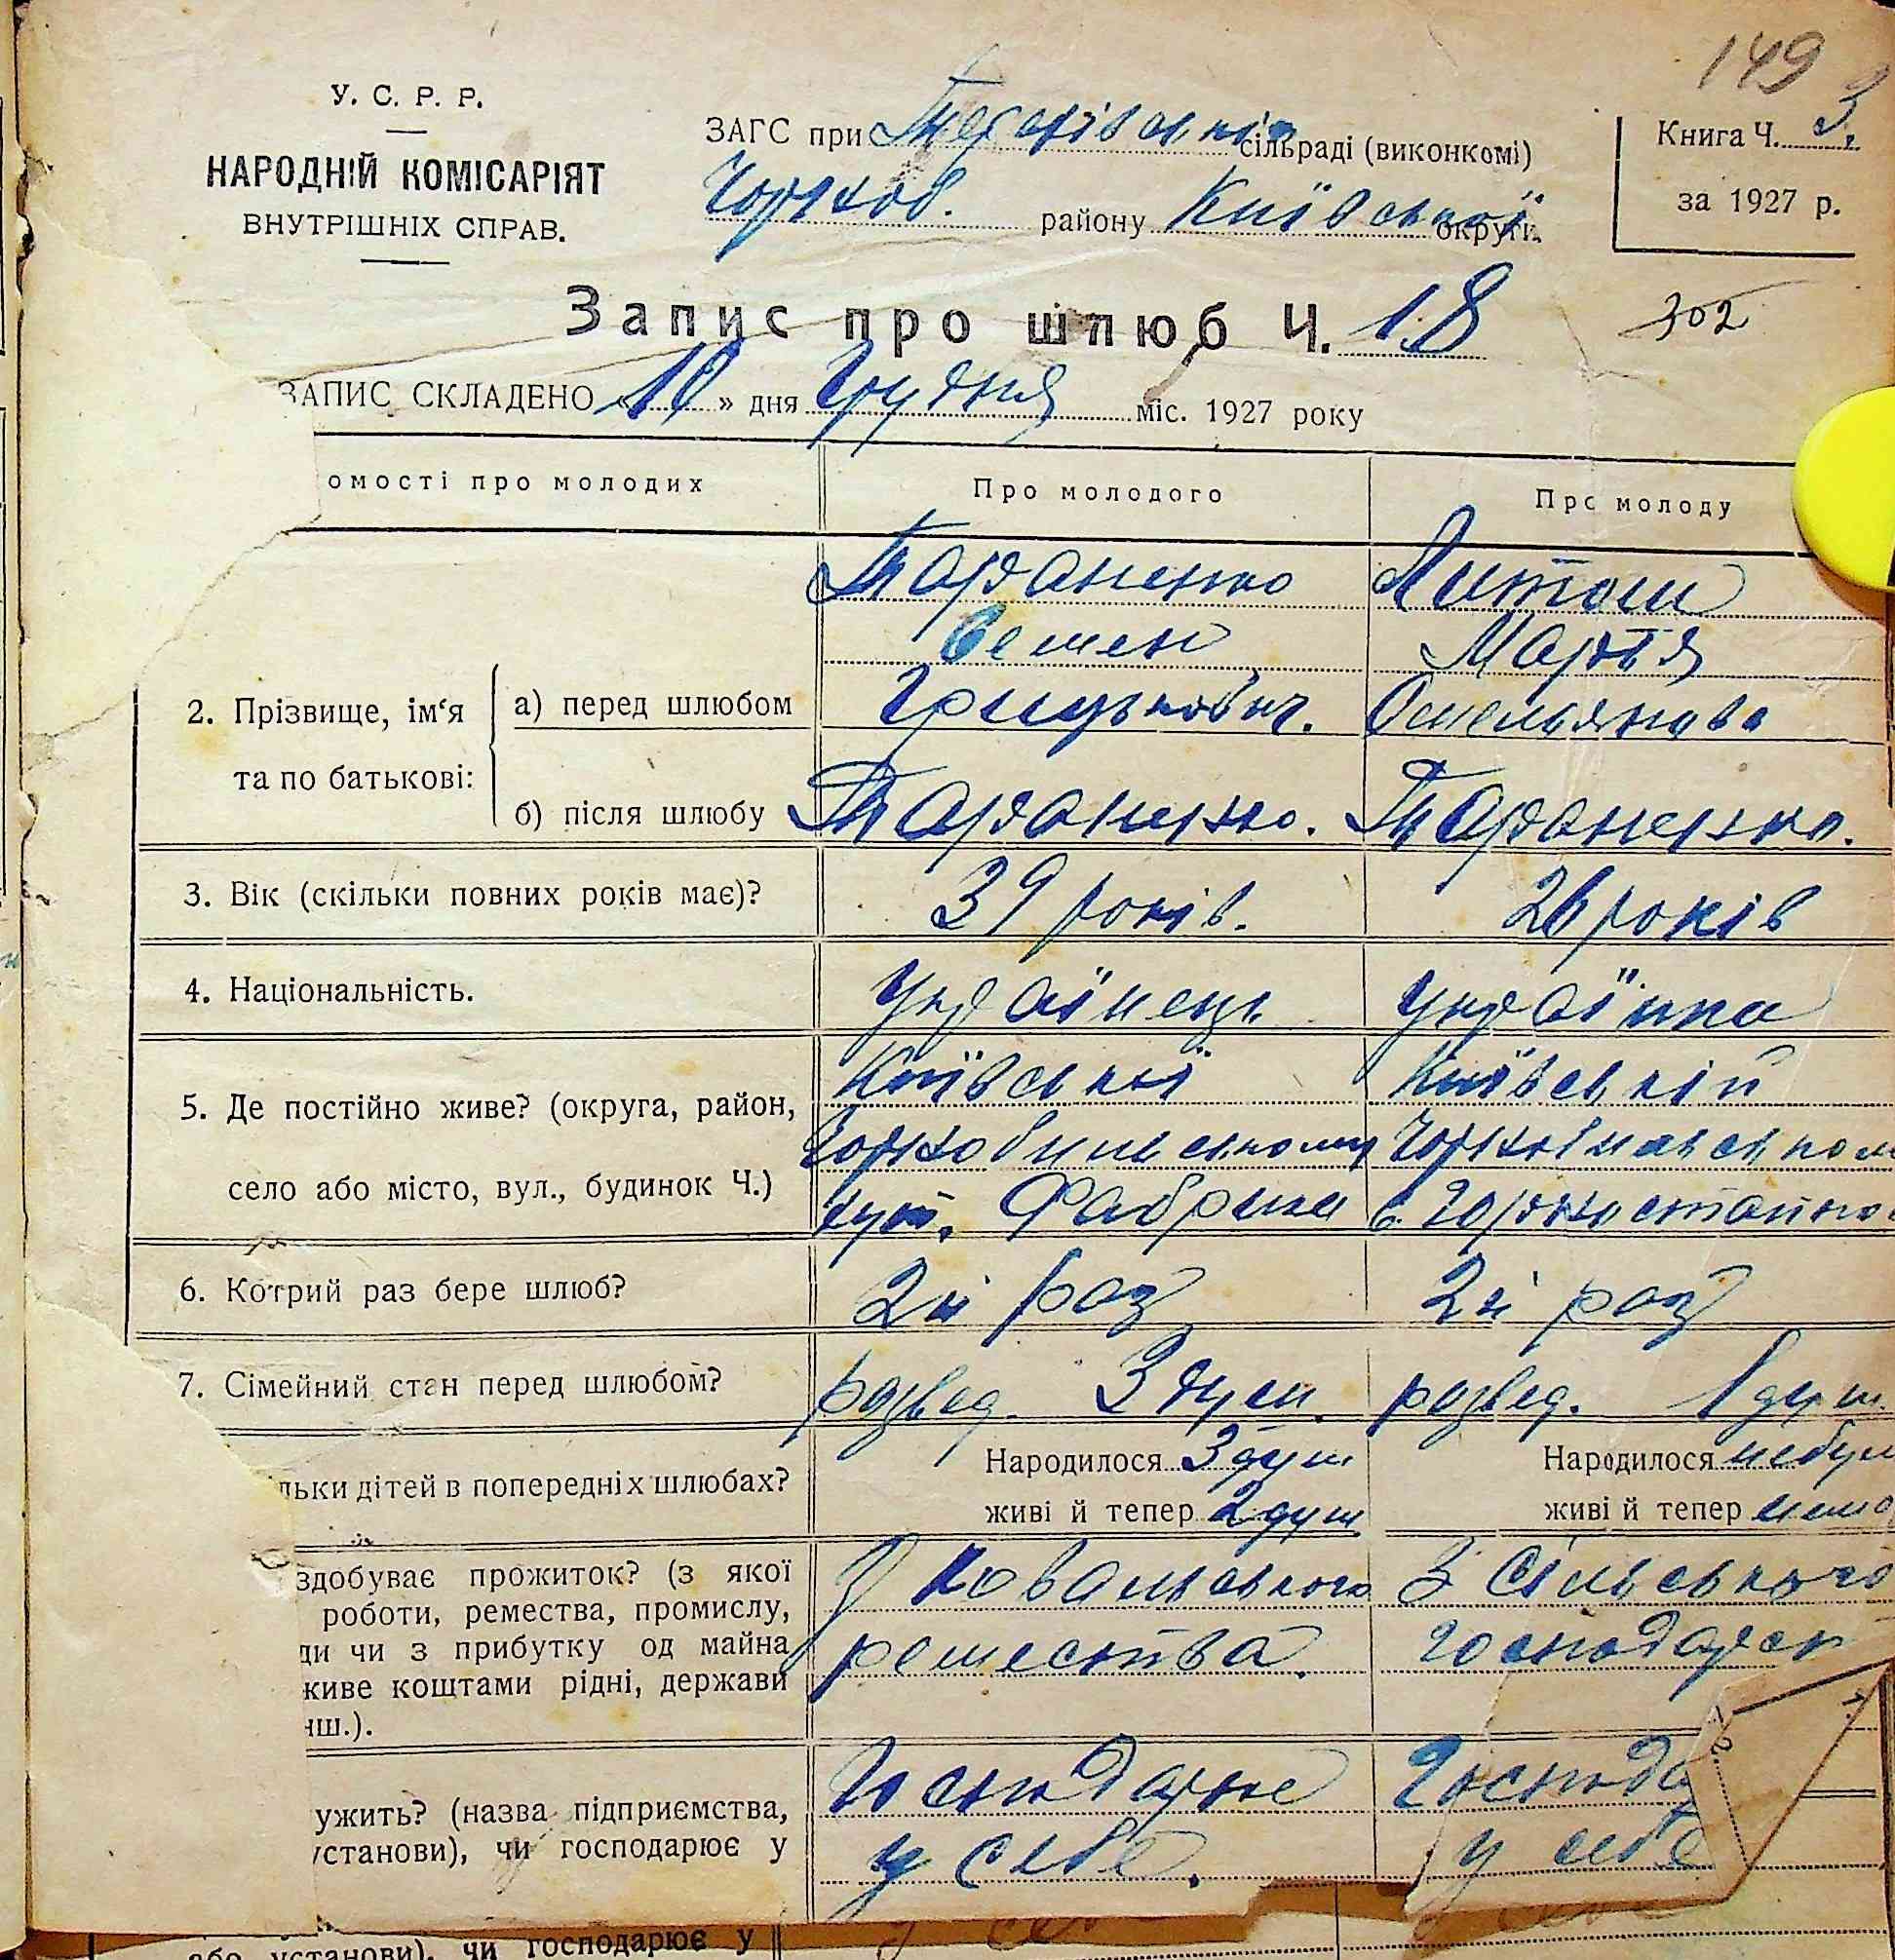 149
У. С. Р. Р.
НАРОДНІЙ КОМІСАРІЯТ
ВНУТРІШНІХ СПРАВ.
ЗАГС при сільраді (виконкомі)
району Київської округи
Книга Ч. 3
за 1927 р.
Запис про шлюб Ч. 18
302
ЗАПИС СКЛАДЕНО « 10 » дня Грудня міс. 1927 року
омості про молодих Про молодого Про молоду
Тараненко
Семен Марія
2. Прізвище, ім‘я а) перед шлюбом Грицькович. Омелянова
та по батькові:
б) після шлюбу Тараненко. Тараненко.
3. Вік (скільки повних років має)? 39 років. 26 років
4. Національність. Українець Українка
Київської Київській
5. Де постійно живе? (округа, район,
село або місто, вул., будинок Ч.) хут. Фабрика с. Горностайпо
6. Котрий раз бере шлюб? 2й раз 2й раз
7. Сімейний стан перед шлюбом? розвед. 3 душ. розвед. 1 душ.
льки дітей в попередніх шлюбах? Народилося 3 душ Народилося небул
живі й тепер 2 душ живі й тепер нема
здобуває прожиток? (з якої З Ковальського З Сільського
роботи, ремества, промислу,
ди чи з прибутку од майна ремества. господарст
живе коштами рідні, держави
нш.).
Господарює Господа
ужить? (назва підприємства,
установи), чи господарює у у себе. у себе
або установи), чи господарює у